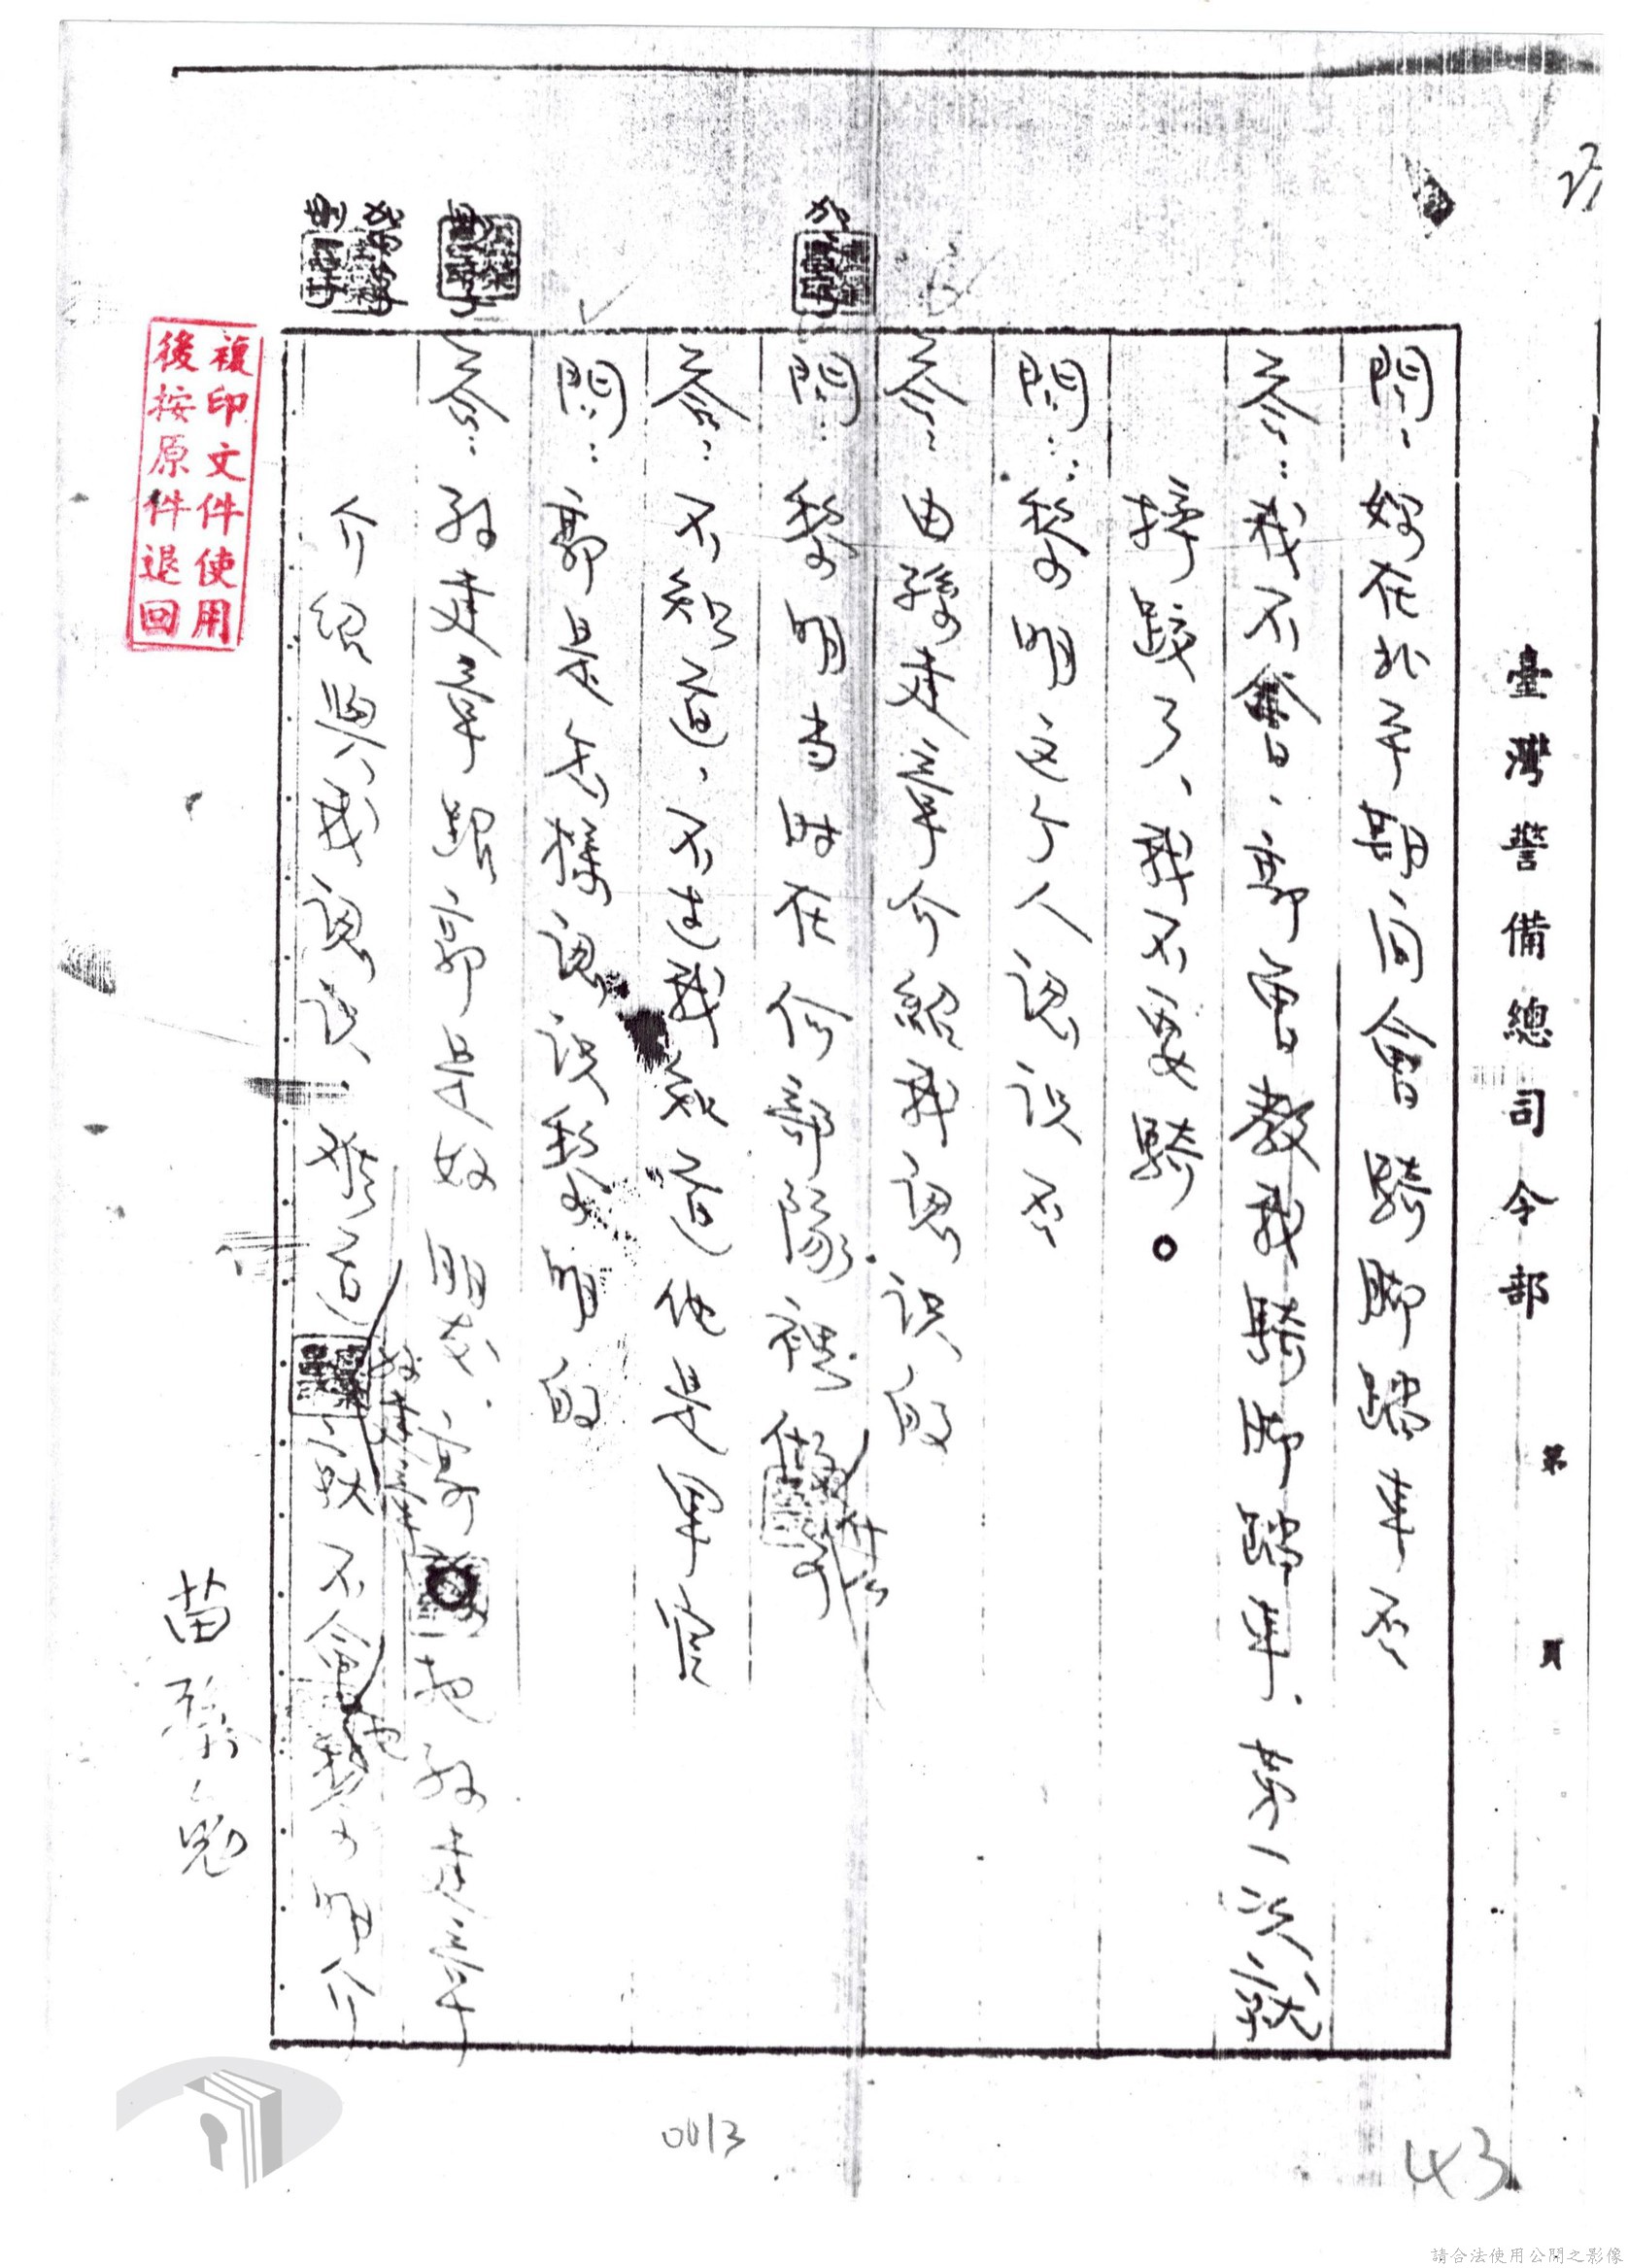 臺灣警備總司令部 第 頁
問：妳在北平期间會騎脚踏車否
答：我不會，郭曾教我騎脚踏車，第一次就
摔跤了，我不要騎。
問：黎明这个人認识否
答：由孫建章介紹我認识的
問：黎明当时在何部隊裡做什么
答：不知道，不过我知道他是軍官
問：郭是怎樣認识黎明的
答：孫建章跟郭是好朋友，郭 把孫建章
介绍與我認识，难道孫建章就不會把黎明介
加 字
刪 字
苗
複印文件使用
後按原件退回
0013
43
請合法使用公開之影像